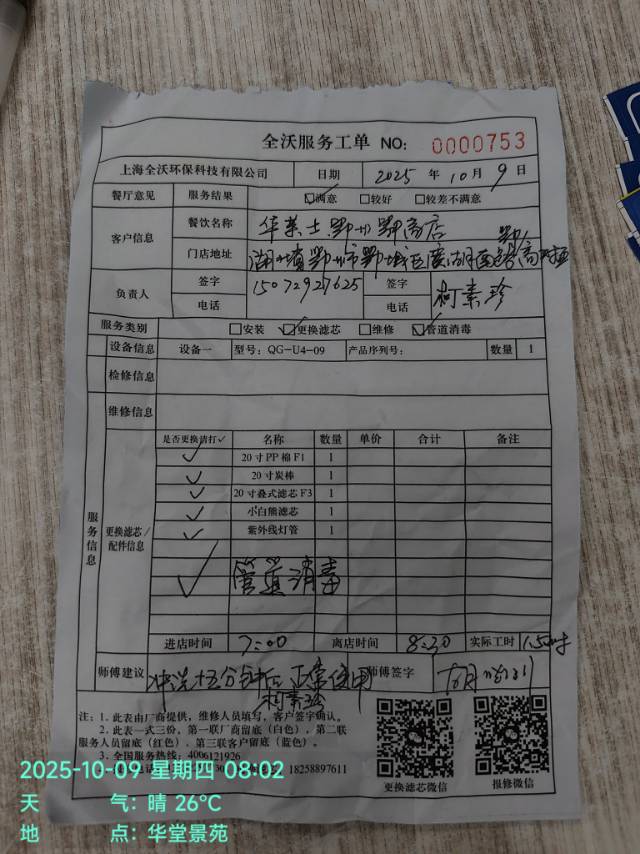 全沃服务工单 NO: 0000753
上海全沃环保科技有限公司 日期 2025 年 10 月 9 日
餐厅意见 服务结果 ☑满意 □较好 □较差不满意
客户信息 餐饮名称 华莱士鄂州鄂高店
门店地址 鄂州市鄂城区
负责人 签字 15072927625 签字 柯素珍
电话 电话
服务类别 □安装 ☑更换滤芯 □维修 ☑管道消毒
设备信息 设备一 型号: QG-U4-09 产品序列号: 数量 1
检修信息
维修信息
服务信息 更换滤芯/配件信息
是否更换请打✓ 名称 数量 单价 合计 备注
✓ 20寸PP棉F1 1
✓ 20寸炭棒 1
✓ 20寸叠式滤芯F3 1
✓ 小白熊滤芯 1
✓ 紫外线灯管 1
✓ 管道消毒
进店时间 7:00 离店时间 8:30 实际工时 1.5
师傅建议 冲洗十五分钟后正常使用 师傅签字
柯素珍
注: 1. 此表由厂商提供，维修人员填写，客户签字确认。
2. 此表一式三份，第一联厂商留底（白色），第二联
服务人员留底（红色），第三联客户留底（蓝色）。
3. 全国服务热线: 4006121926
18258897611
更换滤芯微信 报修微信
2025-10-09 星期四 08:02
天 气: 晴 26℃
地 点: 华堂景苑